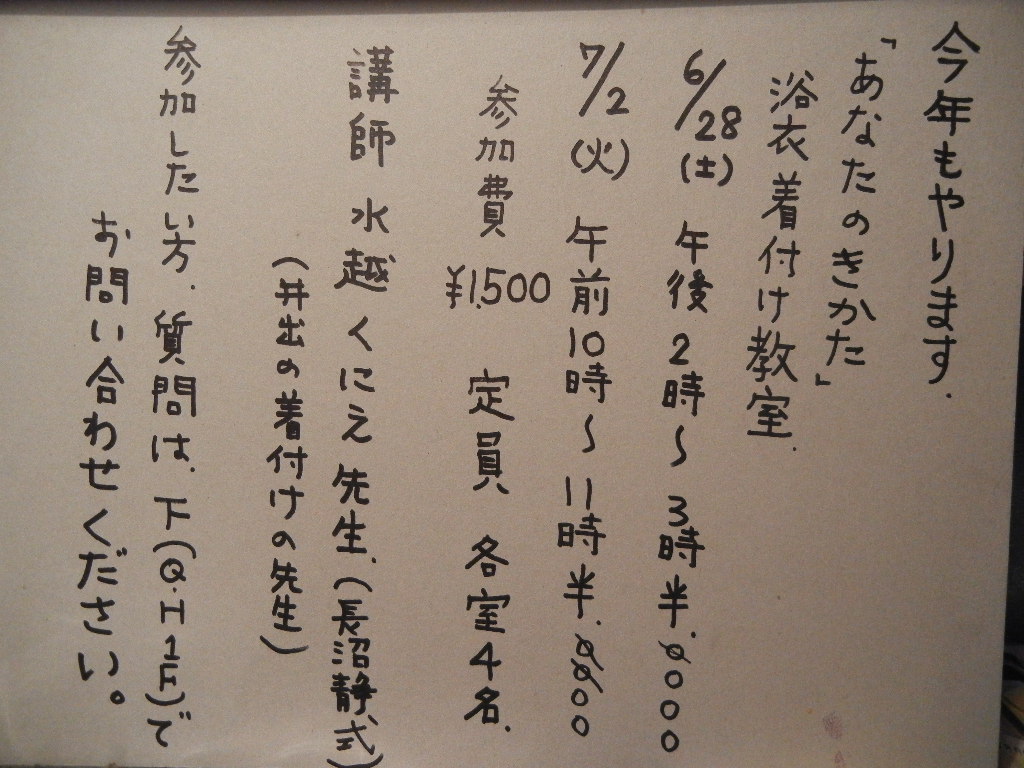 今年もやります.
「あなたのきかた」
浴衣着付け教室.
6/28(土) 午後2時〜3時半.〇〇〇〇
7/2(火) 午前10時〜11時半.〇〇〇〇
参加費 ¥1,500 定員 各室4名.
講師 水越 くにえ 先生.(長沼静式)
(井出の着付けの先生)
参加したい方.質問は.下(Q.H 1F)で
お問い合わせください。